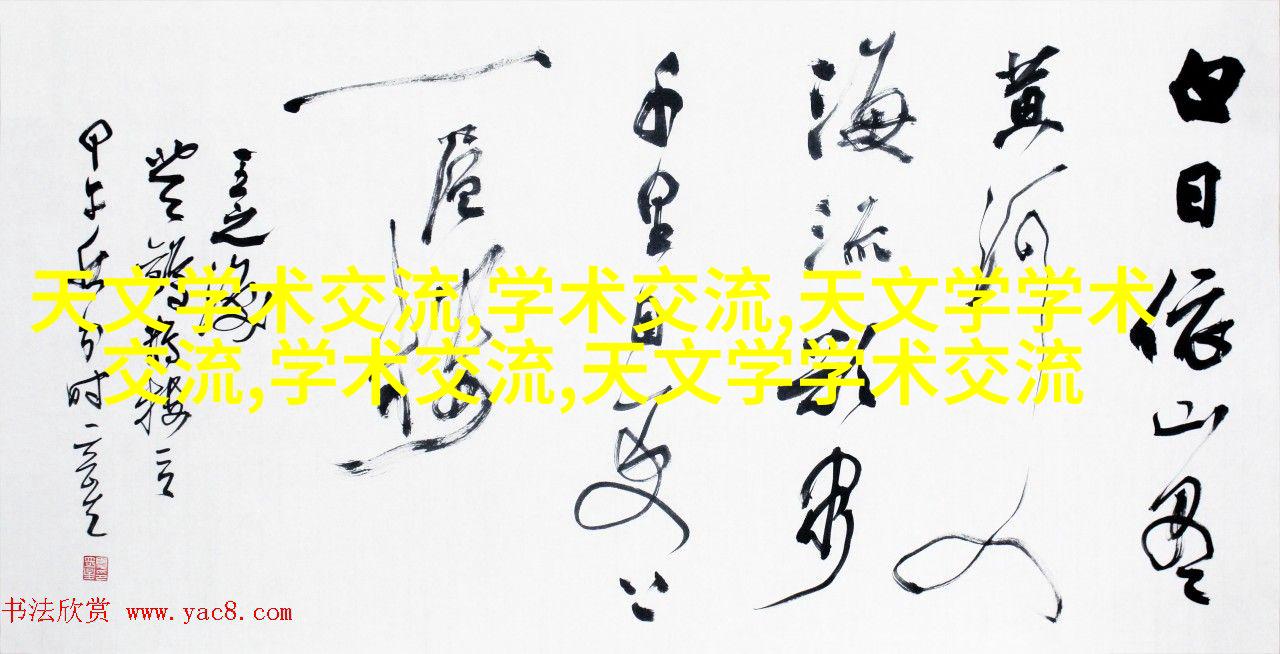 白日依山尽
黄河入
海流欲穷
千里目更上
一層樓
王之涣
登鹳鹊楼
甲午秋月时
天文学术交流,学术交流,天文学学术
交流,学术交流,天文学学术交流
书法欣赏 www.yac8.com